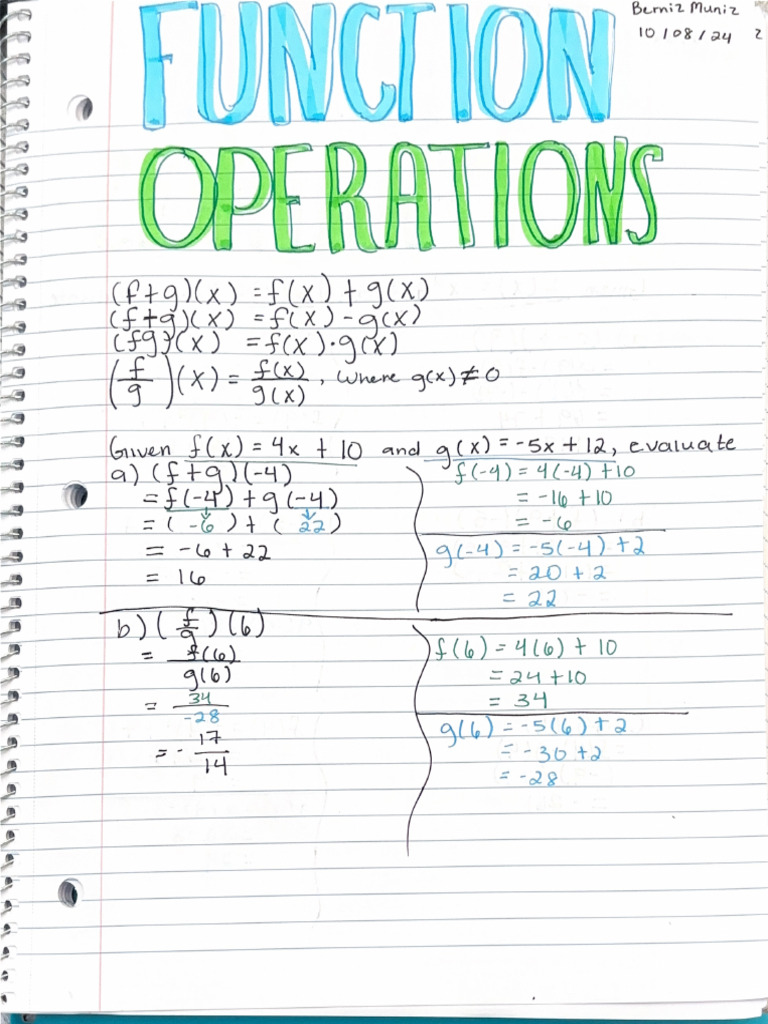 Berniz Muniz
10/08/24 2
FUNCTION
OPERATIONS
(f+g)(x) = f(x) + g(x)
(f+g)(x) = f(x) - g(x)
(fg)(x) = f(x) · g(x)
(f/g)(x) = f(x)/g(x), where g(x) ≠ 0
Given f(x) = 4x + 10 and g(x) = -5x + 12, evaluate
a) (f+g)(-4)
= f(-4) + g(-4)
= (-6) + (22)
= -6 + 22
= 16
f(-4) = 4(-4) +10
= -16 + 10
= -6
g(-4) = -5(-4) + 2
= 20 + 2
= 22
b) (f/g)(6)
= f(6)/g(6)
= 34/-28
= - 17/14
f(6) = 4(6) + 10
= 24 + 10
= 34
g(6) = -5(6) + 2
= -30 + 2
= -28